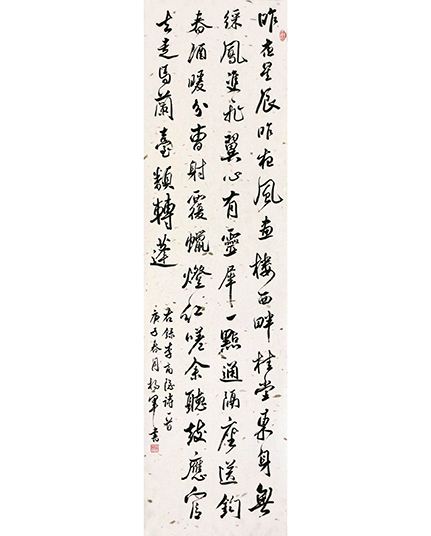 昨夜星辰昨夜風畫樓西畔桂堂東身無
綵鳳雙飛翼心有靈犀一點通隔座送鈎
春酒暖分曹射覆蠟燈紅嗟余聽鼓應官
去走馬蘭臺類轉蓬
右錄李商隱詩一首
庚子春月楊軍書